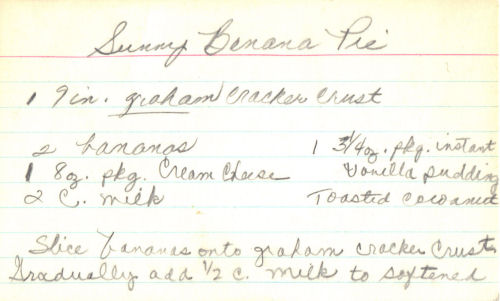 Sunny Banana Pie
1 9in. graham cracker crust
2 bananas
1 8oz. pkg. Cream Cheese
2 C. milk
1 3 1/4 oz. pkg. instant
Vanilla pudding
Toasted cocoanut
Slice bananas onto graham cracker crust.
Gradually add 1/2 c. milk to softened